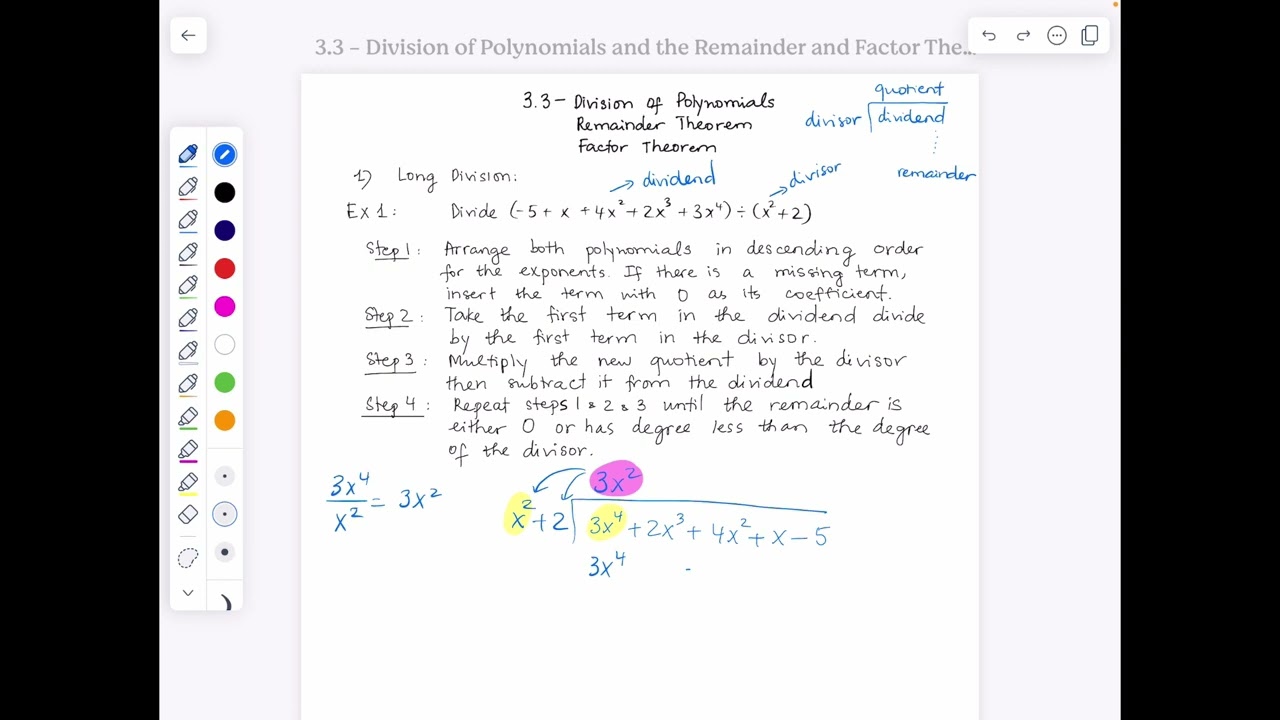 3.3 – Division of Polynomials and the Remainder and Factor The...
3.3 – Division of Polynomials
Remainder Theorem
Factor Theorem
quotient
divisor
dividend
remainder
1) Long Division:
dividend
divisor
Ex 1: Divide (-5 + x + 4x² + 2x³ + 3x⁴) ÷ (x² + 2)
Step 1: Arrange both polynomials in descending order
for the exponents. If there is a missing term,
insert the term with 0 as its coefficient.
Step 2: Take the first term in the dividend divide
by the first term in the divisor.
Step 3: Multiply the new quotient by the divisor
then subtract it from the dividend
Step 4: Repeat steps 1 & 2 & 3 until the remainder is
either 0 or has degree less than the degree
of the divisor.
3x⁴/x² = 3x²
3x²
x² + 2
3x⁴ + 2x³ + 4x² + x – 5
3x⁴ -